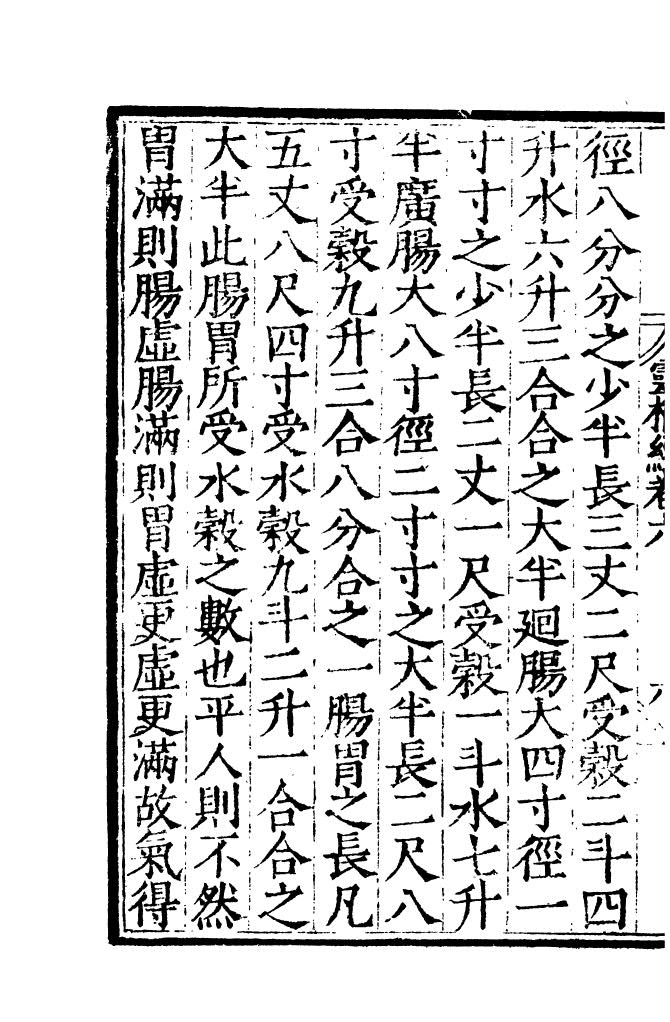 靈樞經卷六
徑八分分之少半長三丈二尺受穀二斗四
升水六升三合合之大半廻腸大四寸徑一
寸寸之少半長二丈一尺受穀一斗水七升
半廣腸大八寸徑二寸寸之大半長二尺八
寸受穀九升三合八分合之一腸胃之長凡
五丈八尺四寸受水穀九斗二升一合合之
大半此腸胃所受水穀之數也平人則不然
胃滿則腸虛腸滿則胃虛更虛更滿故氣得